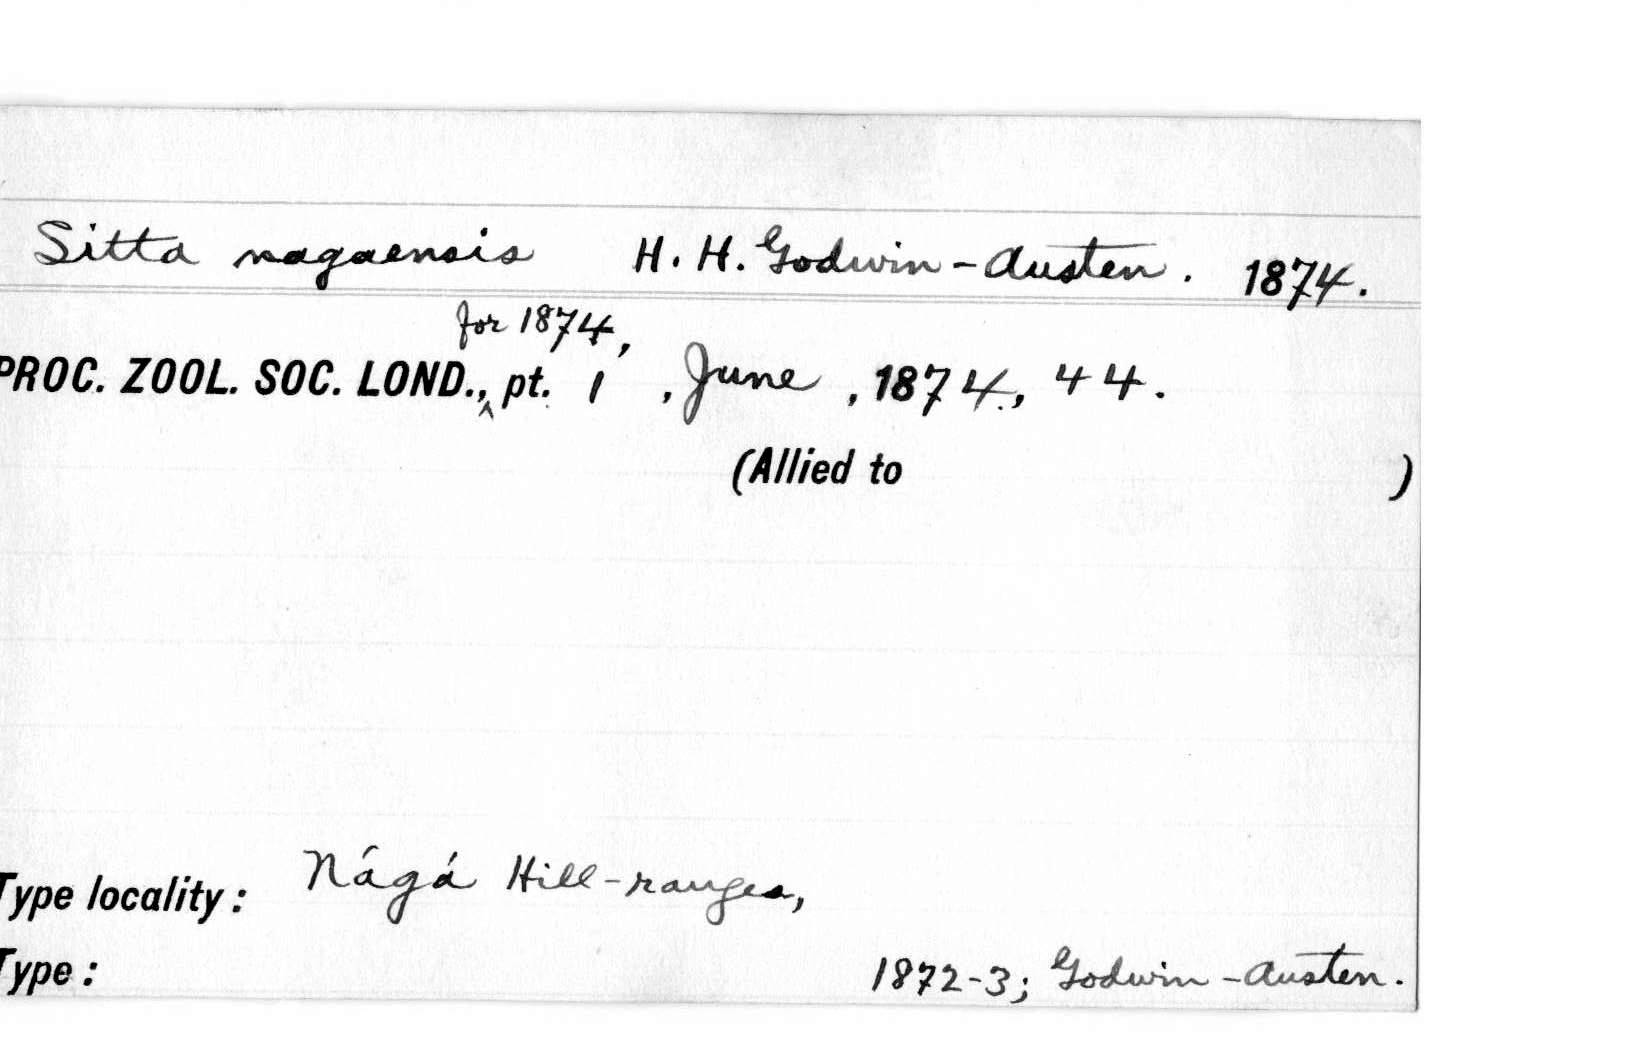 Sitta nagaensis H. H. Godwin-Austen. 1874.
for 1874,
PROC. ZOOL. SOC. LOND.,^ pt. 1, June, 1874, 44.
(Allied to )
Type locality: Nágá Hill-ranges,
Type: 1872-3; Godwin-Austen.